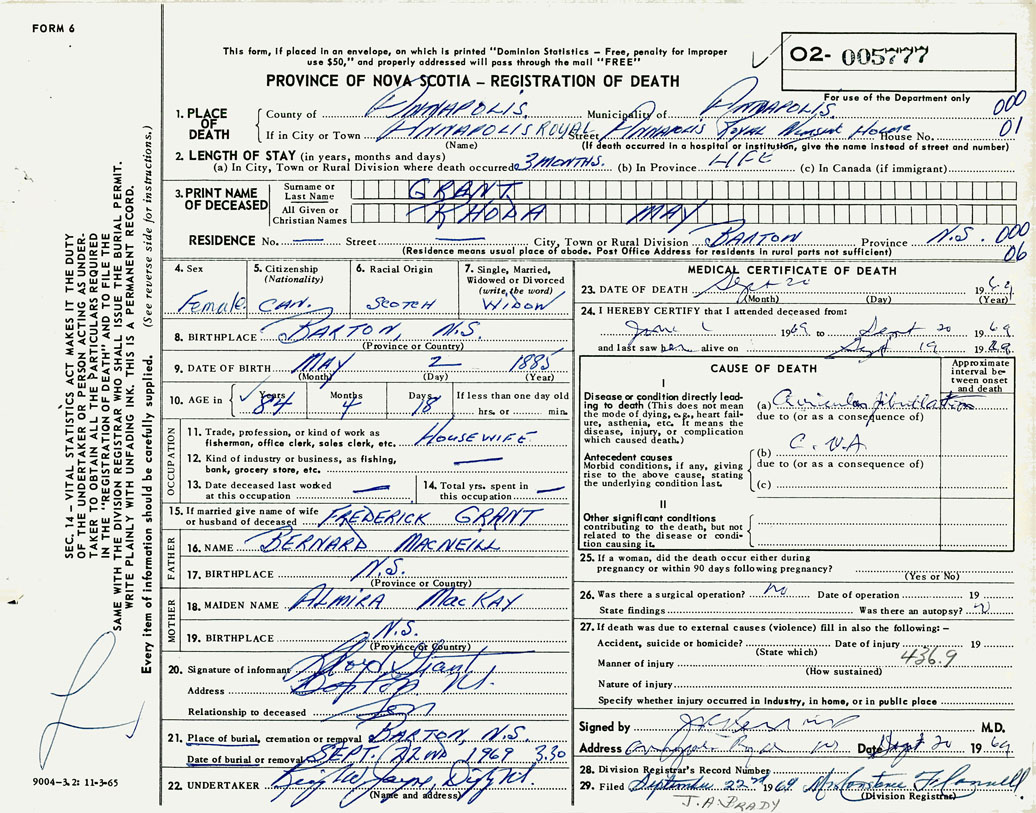 FORM 6
This form, if placed in an envelope, on which is printed "Dominion Statistics – Free, penalty for improper
use $50," and properly addressed will pass through the mail "FREE"
02- 005777
PROVINCE OF NOVA SCOTIA – REGISTRATION OF DEATH
For use of the Department only
1. PLACE OF DEATH
County of ANNAPOLIS. Municipality of ANNAPOLIS. 000
If in City or Town ANNAPOLIS ROYAL Street Annapolis Royal Nursing Home House No. 01
(Name) (If death occurred in a hospital or institution, give the name instead of street and number)
2. LENGTH OF STAY (in years, months and days)
(a) In City, Town or Rural Division where death occurred 3 MONTHS. (b) In Province LIFE (c) In Canada (if immigrant)
3. PRINT NAME OF DECEASED
Surname or Last Name GRANT
All Given or Christian Names RHODA MAY
RESIDENCE No. — Street — City, Town or Rural Division BARTON Province N.S. 000
(Residence means usual place of abode. Post Office Address for residents in rural parts not sufficient) 06
4. Sex Female.
5. Citizenship (Nationality) CAN.
6. Racial Origin SCOTCH
7. Single, Married, Widowed or Divorced (write the word) WIDOW
8. BIRTHPLACE BARTON, N.S.
(Province or Country)
9. DATE OF BIRTH MAY 2 1885
(Month) (Day) (Year)
10. AGE in Years 84 Months 4 Days 18 If less than one day old
hrs. or min.
OCCUPATION
11. Trade, profession, or kind of work as fisherman, office clerk, sales clerk, etc. HOUSEWIFE
12. Kind of industry or business, as fishing, bank, grocery store, etc. —
13. Date deceased last worked at this occupation —
14. Total yrs. spent in this occupation —
15. If married give name of wife or husband of deceased FREDERICK GRANT
FATHER
16. NAME BERNARD MACNEILL
17. BIRTHPLACE N.S.
(Province or Country)
MOTHER
18. MAIDEN NAME ALMIRA MACKAY
19. BIRTHPLACE N.S.
(Province or Country)
20. Signature of informant Grant
Address
Relationship to deceased Son
21. Place of burial, cremation or removal BARTON, N.S.
Date of burial or removal SEPT. 22ND 1969 3.30
22. UNDERTAKER
(Name and address)
MEDICAL CERTIFICATE OF DEATH
23. DATE OF DEATH Sept 20 1969
(Month) (Day) (Year)
24. I HEREBY CERTIFY that I attended deceased from:
June 1 1969 to Sept 20 1969
and last saw her alive on Sept 19 1969.
CAUSE OF DEATH
Approximate interval between onset and death
I
Disease or condition directly leading to death (This does not mean the mode of dying, e.g., heart failure, asthenia, etc. It means the disease, injury, or complication which caused death.)
(a) Auricular fibrillation
due to (or as a consequence of)
Antecedent causes
Morbid conditions, if any, giving rise to the above cause, stating the underlying condition last.
(b) C.V.A
due to (or as a consequence of)
(c)
II
Other significant conditions contributing to the death, but not related to the disease or condition causing it.
25. If a woman, did the death occur either during pregnancy or within 90 days following pregnancy?
(Yes or No)
26. Was there a surgical operation? no Date of operation 19
State findings Was there an autopsy?
27. If death was due to external causes (violence) fill in also the following: –
Accident, suicide or homicide? Date of injury 19
(State which) 436.9
Manner of injury
(How sustained)
Nature of injury
Specify whether injury occurred in industry, in home, or in public place
Signed by M.D.
Address Date Sept 20 1969
28. Division Registrar's Record Number
29. Filed September 22nd 1969 Mrs Constance
(Division Registrar)
J.A. BRADY
SEC. 14 – VITAL STATISTICS ACT MAKES IT THE DUTY
OF THE UNDERTAKER OR PERSON ACTING AS UNDER-
TAKER TO OBTAIN ALL THE PARTICULARS REQUIRED
IN THE "REGISTRATION OF DEATH" AND TO FILE THE
SAME WITH THE DIVISION REGISTRAR WHO SHALL ISSUE THE BURIAL PERMIT.
WRITE PLAINLY WITH UNFADING INK. THIS IS A PERMANENT RECORD.
Every item of information should be carefully supplied. (See reverse side for instructions.)
9004-3.2: 11-3-65